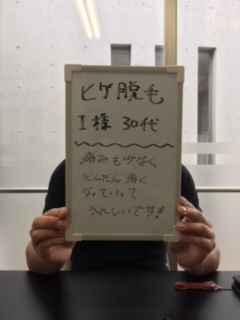 ヒゲ脱毛
I様 30代
痛みも少なく
だんだん薄く
なっていって
うれしいです!